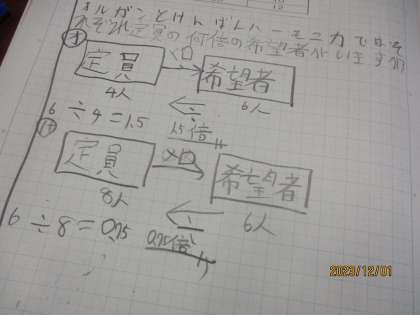 オルガンとけんばんハーモニカでは、そ
れぞれ定員の何倍の希望者がいますか
オ
定員 ×□ 希望者
4人 6人
÷
6÷4=1.5 1.5倍
け
定員 ×□ 希望者
8人 6人
÷
6÷8=0.75 0.75倍
2023/12/01